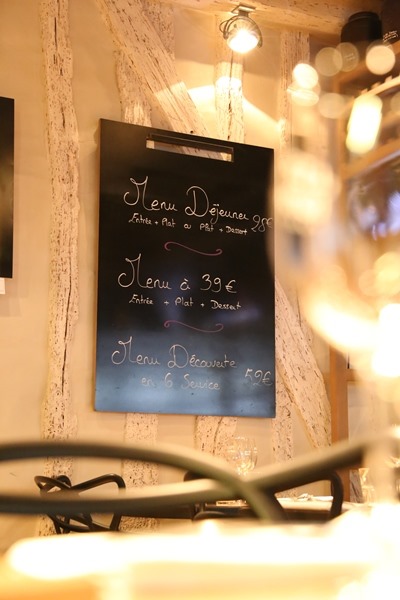 Menu Déjeuner 28€
Entrée + Plat ou Plat + Dessert
Menu à 39€
Entrée + Plat + Dessert
Menu Découverte
en 6 Service 52€